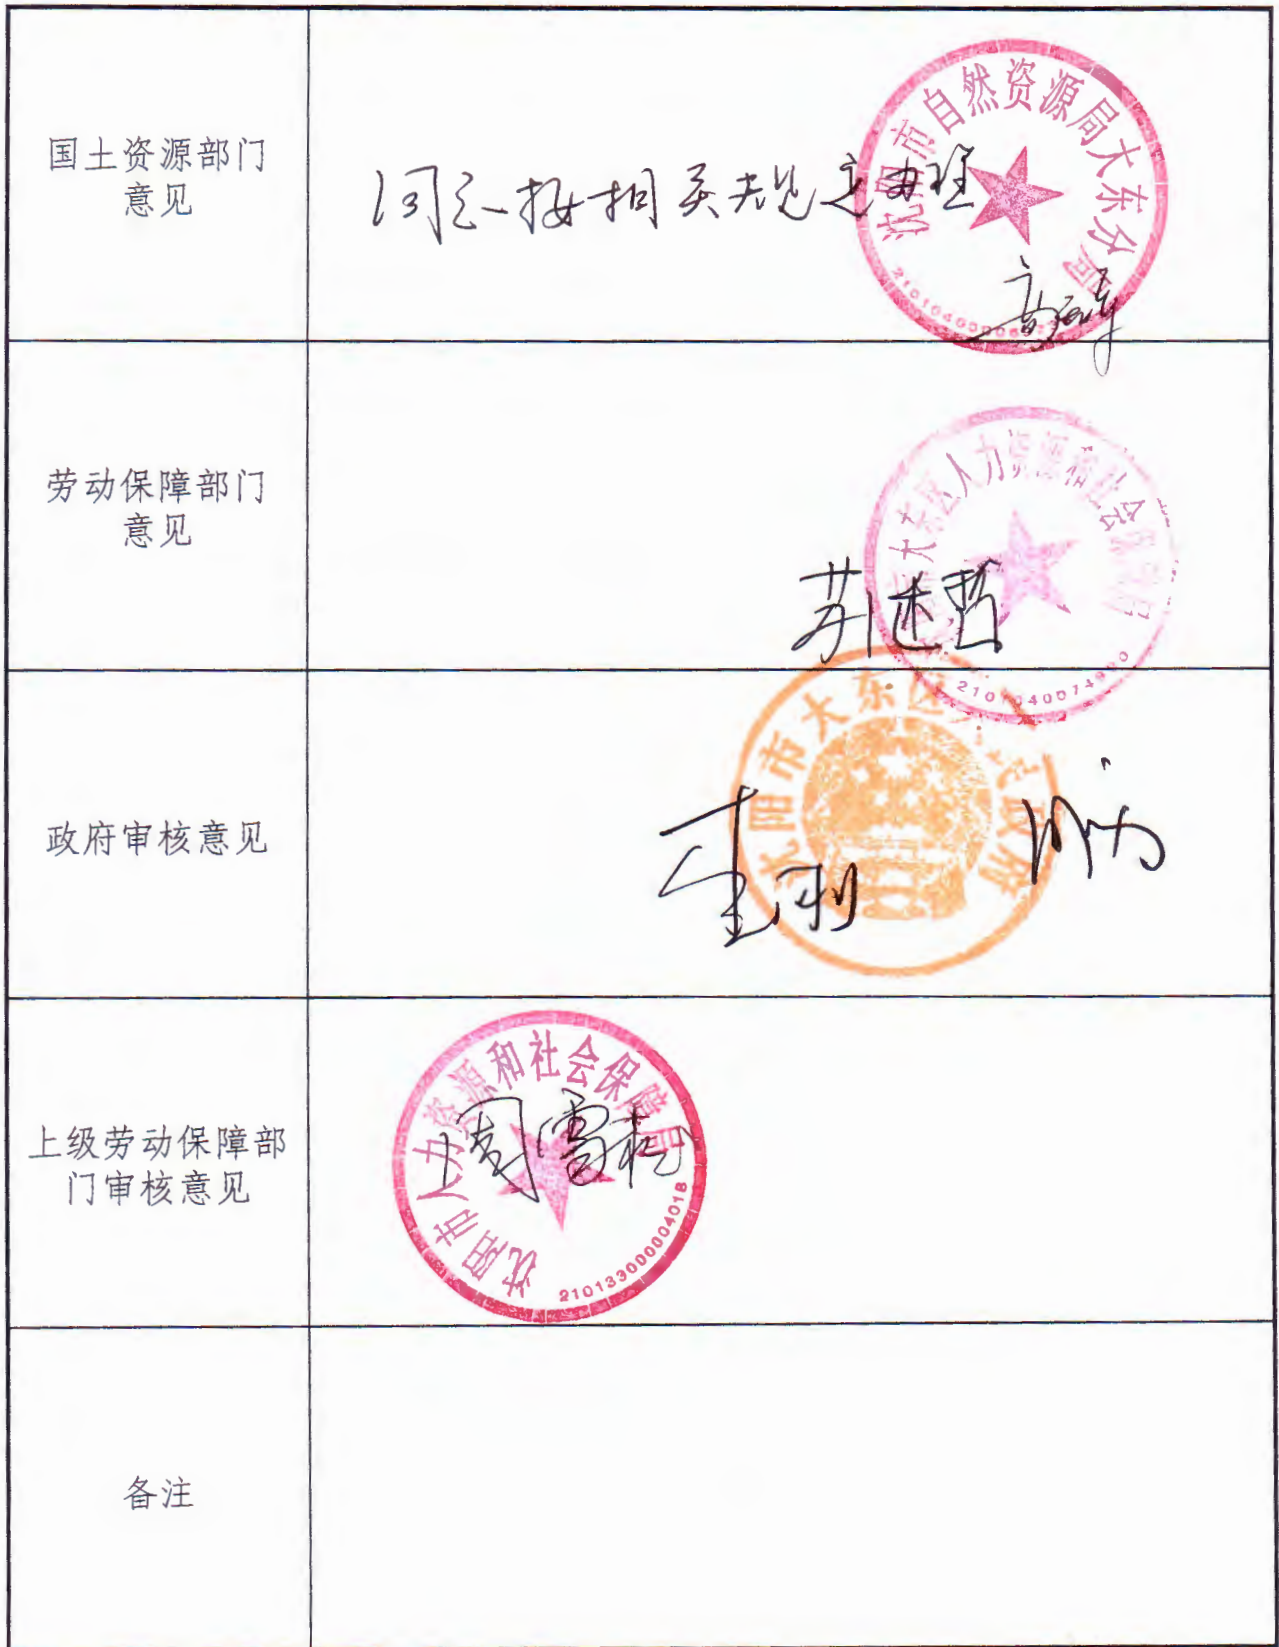 国土资源部门
意见
同意按相关规定办理
沈阳市自然资源局大东分局
劳动保障部门
意见
大东区人力资源和社会保障局
政府审核意见
沈阳市大东区人民政府
上级劳动保障部
门审核意见
沈阳市人力资源和社会保障局
210133000004018
备注